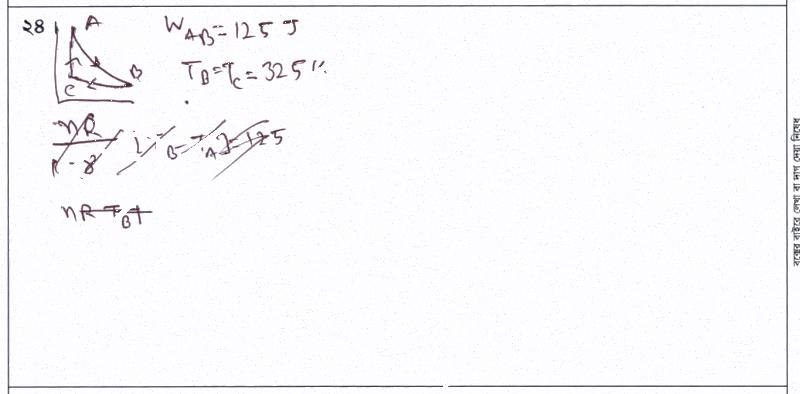 ২৪ A W_AB = 125 J
B T_B = T_C = 325 K.
C
nR/1-γ [T_B - T_A] = 125
nR T_B +
বক্সের বাইরে লেখা বা দাগ দেয়া নিষেধ